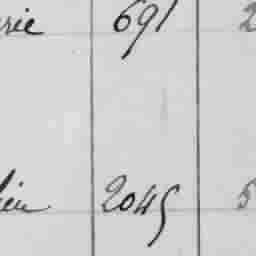 rie 691 2
lieu 2045 5